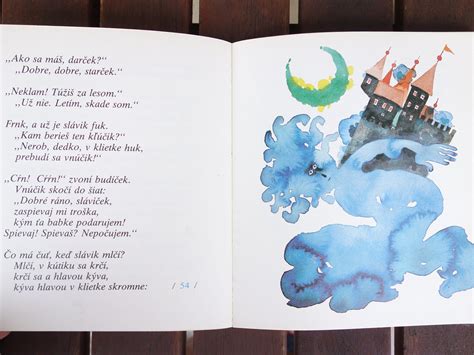 „Ako sa máš, darček?“
„Dobre, dobre, starček.“
„Neklam! Túžiš za lesom.“
„Už nie. Letím, skade som.“
Frnk, a už je slávik fuk.
„Kam berieš ten kľúčik?“
„Nerob, dedko, v klietke huk,
prebudí sa vnúčik!“
„Cŕn! Cŕŕn!“ zvoní budíček.
Vnúčik skočí do šiat:
„Dobré ráno, sláviček,
zaspievaj mi troška,
kým ťa babke podarujem!
Spievaj! Spievaš? Nepočujem.“
Čo má čuť, keď slávik mlčí?
Mlčí, v kútiku sa krčí,
krčí sa a hlavou kýva,
kýva hlavou v klietke skromne:
/ 54 /